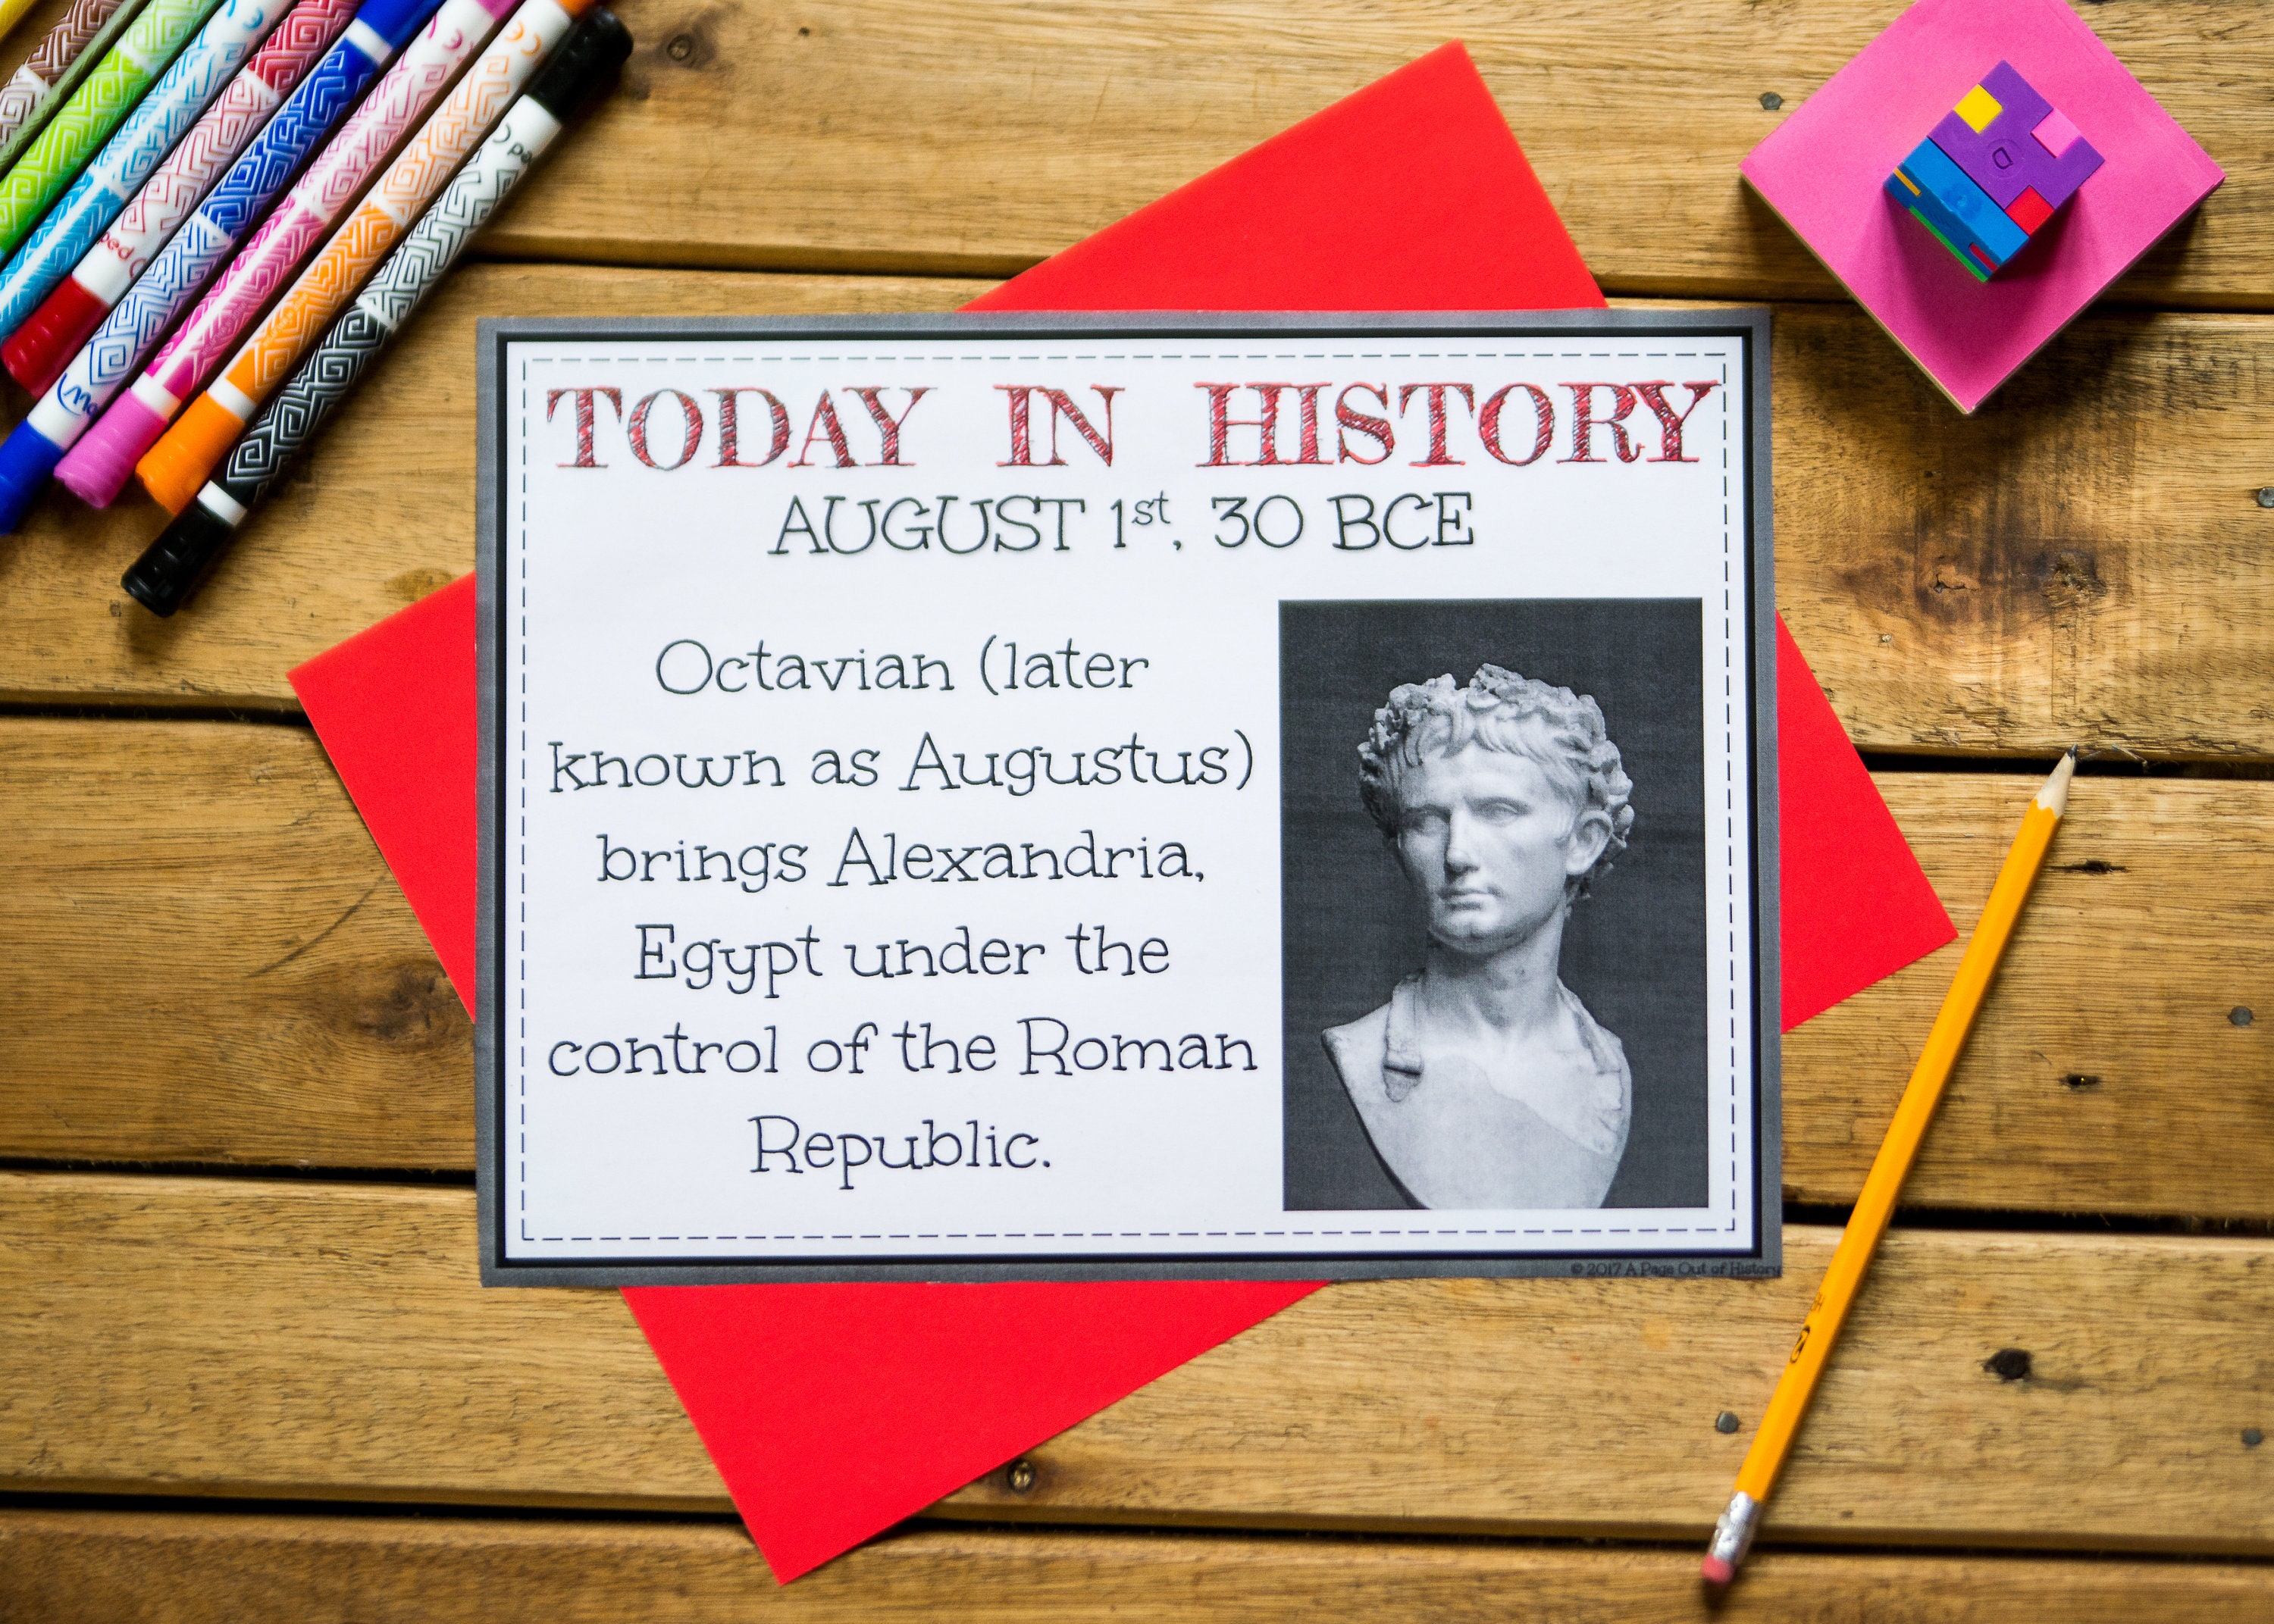 TODAY IN HISTORY
AUGUST 1st, 30 BCE
Octavian (later
known as Augustus)
brings Alexandria,
Egypt under the
control of the Roman
Republic.
© 2017 A Page Out of History